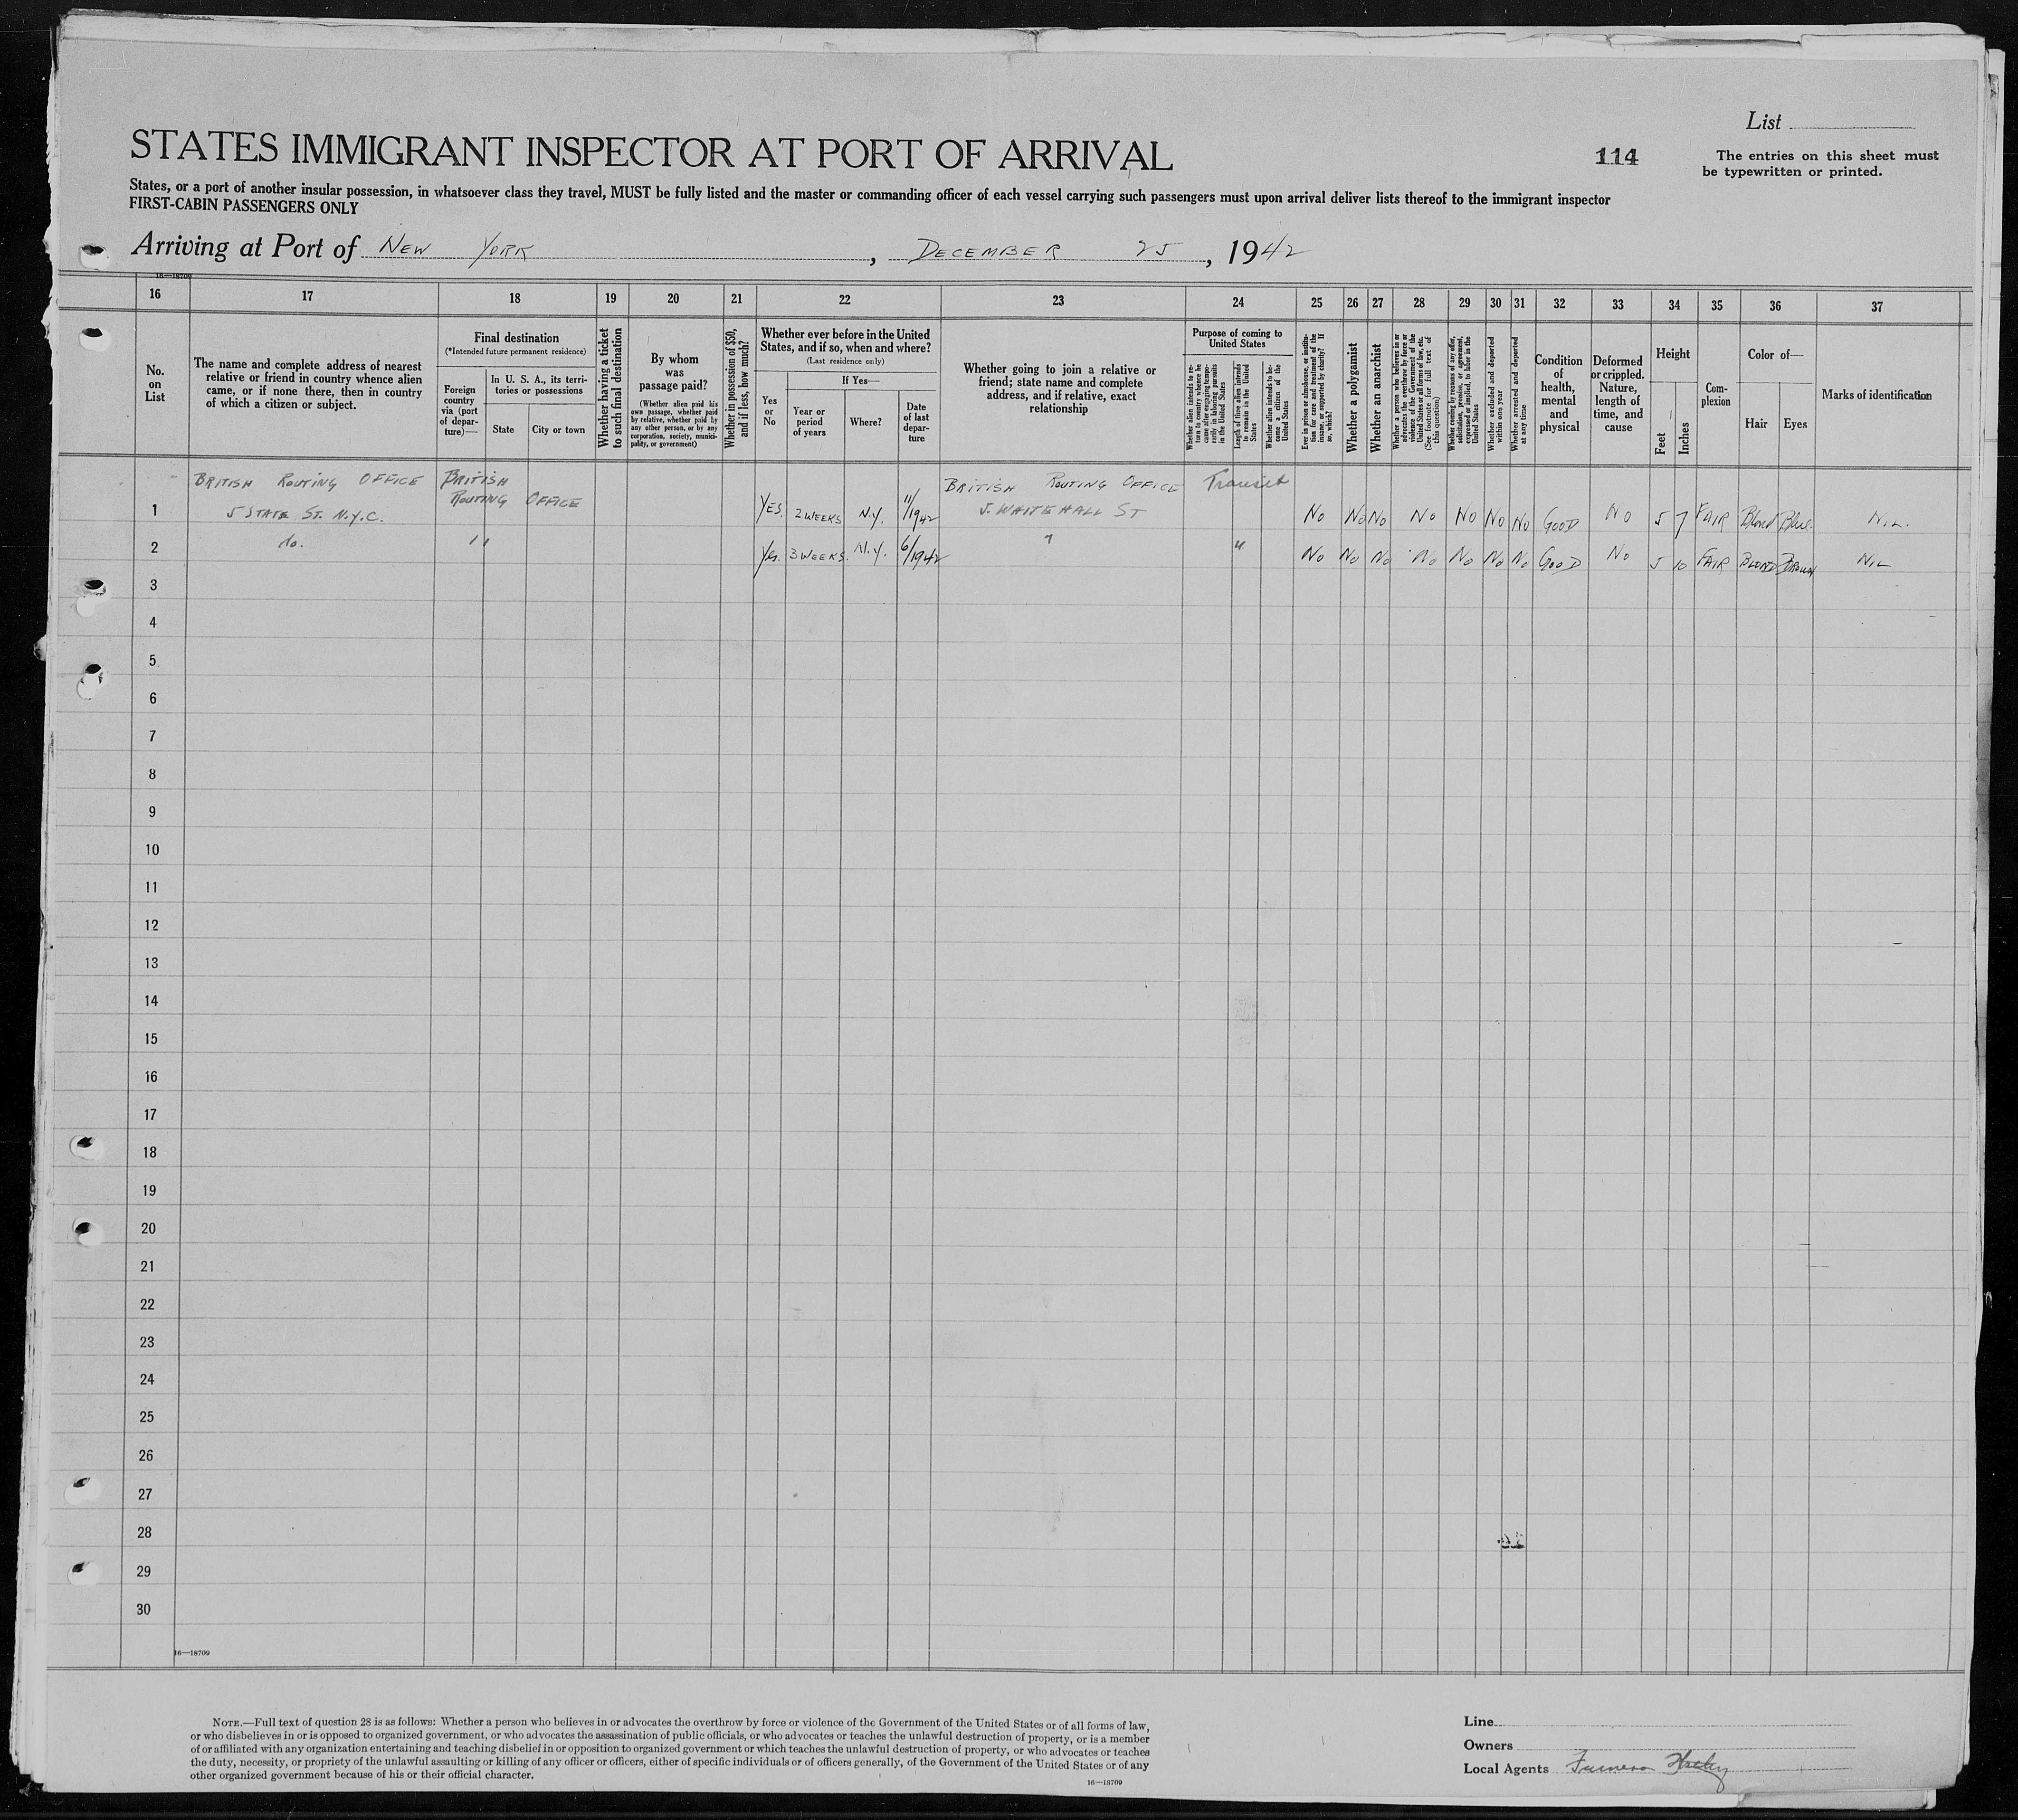 List
STATES IMMIGRANT INSPECTOR AT PORT OF ARRIVAL
114
The entries on this sheet must
be typewritten or printed.
States, or a port of another insular possession, in whatsoever class they travel, MUST be fully listed and the master or commanding officer of each vessel carrying such passengers must upon arrival deliver lists thereof to the immigrant inspector
FIRST-CABIN PASSENGERS ONLY
Arriving at Port of NEW YORK, DECEMBER 25, 1942
16—18709
16 17 18 19 20 21 22 23 24 25 26 27 28 29 30 31 32 33 34 35 36 37
No.
on
List
The name and complete address of nearest
relative or friend in country whence alien
came, or if none there, then in country
of which a citizen or subject.
Final destination
(*Intended future permanent residence)
Foreign
country
via (port
of depar-
ture)—
In U. S. A., its terri-
tories or possessions
State
City or town
Whether having a ticket
to such final destination
By whom
was
passage paid?
(Whether alien paid his
own passage, whether paid
by relative, whether paid by
any other person, or by any
corporation, society, munici-
pality, or government)
Whether in possession of $50,
and if less, how much?
Whether ever before in the United
States, and if so, when and where?
(Last residence only)
Yes
or
No
If Yes—
Year or
period
of years
Where?
Date
of last
depar-
ture
Whether going to join a relative or
friend; state name and complete
address, and if relative, exact
relationship
Purpose of coming to
United States
Whether alien intends to re-
turn to country whence he
came after engaging tempo-
rarily in laboring pursuits
in the United States
Length of time alien intends
to remain in the United
States
Whether alien intends to be-
come a citizen of the
United States
Ever in prison or almshouse, or institu-
tion for care and treatment of the
insane, or supported by charity? If
so, which?
Whether a polygamist
Whether an anarchist
Whether a person who believes in or
advocates the overthrow by force or
violence of the Government of the
United States or all forms of law, etc.
(See footnote for full text of
this question)
Whether coming by reasons of any offer,
solicitation, promise, or agreement,
expressed or implied, to labor in the
United States
Whether excluded and deported
within one year
Whether arrested and deported
at any time
Condition
of
health,
mental
and
physical
Deformed
or crippled.
Nature,
length of
time, and
cause
Height
Feet
Inches
Com-
plexion
Color of—
Hair
Eyes
Marks of identification
BRITISH ROUTING OFFICE BRITISH BRITISH ROUTING OFFICE Transit
ROUTING OFFICE
1 5 STATE ST. N.Y.C. YES. 2 WEEKS N.Y. 11/1942 5. WHITEHALL ST No No No No No No No GOOD No 5 7 FAIR Blond Blue. NIL.
2 do. " Yes. 3 WEEKS. N.Y. 6/1942 " " No No No No No No No GOOD No 5 10 FAIR BLOND BROWN NIL
3
4
5
6
7
8
9
10
11
12
13
14
15
16
17
18
19
20
21
22
23
24
25
26
27
28
29
30
16—18709
NOTE.—Full text of question 28 is as follows: Whether a person who believes in or advocates the overthrow by force or violence of the Government of the United States or of all forms of law,
or who disbelieves in or is opposed to organized government, or who advocates the assassination of public officials, or who advocates or teaches the unlawful destruction of property, or is a member
of or affiliated with any organization entertaining and teaching disbelief in or opposition to organized government or which teaches the unlawful destruction of property, or who advocates or teaches
the duty, necessity, or propriety of the unlawful assaulting or killing of any officer or officers, either of specific individuals or of officers generally, of the Government of the United States or of any
other organized government because of his or their official character.
16—18709
Line
Owners
Local Agents